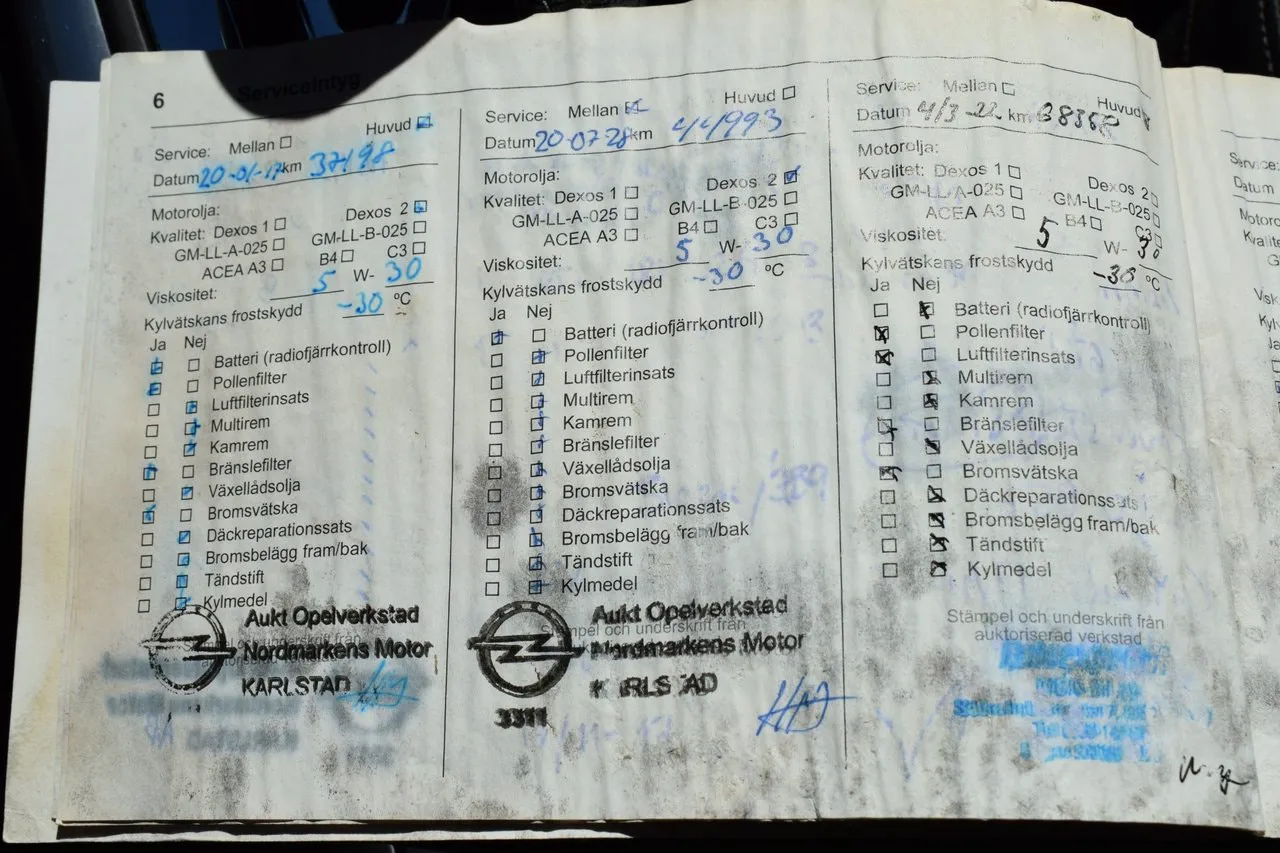 6
Serviceintyg
Service: Mellan
Huvud
Datum 20-01-17 km 37198
Motorolja:
Kvalitet: Dexos 1
Dexos 2
GM-LL-A-025
GM-LL-B-025
ACEA A3
B4
C3
Viskositet: 5 W- 30
Kylvätskans frostskydd -30 °C
Ja Nej
Batteri (radiofjärrkontroll)
Pollenfilter
Luftfilterinsats
Multirem
Kamrem
Bränslefilter
Växellådsolja
Bromsvätska
Däckreparationssats
Bromsbelägg fram/bak
Tändstift
Kylmedel
Stämpel och underskrift från
Aukt Opelverkstad
Nordmarkens Motor
KARLSTAD
Service: Mellan
Huvud
Datum 20-07-28 km 44993
Motorolja:
Kvalitet: Dexos 1
Dexos 2
GM-LL-A-025
GM-LL-B-025
ACEA A3
B4
C3
Viskositet: 5 W- 30
Kylvätskans frostskydd -30 °C
Ja Nej
Batteri (radiofjärrkontroll)
Pollenfilter
Luftfilterinsats
Multirem
Kamrem
Bränslefilter
Växellådsolja
Bromsvätska
Däckreparationssats
Bromsbelägg fram/bak
Tändstift
Kylmedel
Stämpel och underskrift från
Aukt Opelverkstad
Nordmarkens Motor
KARLSTAD
3311
Service: Mellan
Huvud
Datum 4/3-22 km
Motorolja:
Kvalitet: Dexos 1
Dexos 2
GM-LL-A-025
GM-LL-B-025
ACEA A3
B4
C3
Viskositet: 5 W- 30
Kylvätskans frostskydd -30 °C
Ja Nej
Batteri (radiofjärrkontroll)
Pollenfilter
Luftfilterinsats
Multirem
Kamrem
Bränslefilter
Växellådsolja
Bromsvätska
Däckreparationssats
Bromsbelägg fram/bak
Tändstift
Kylmedel
Stämpel och underskrift från
auktoriserad verkstad